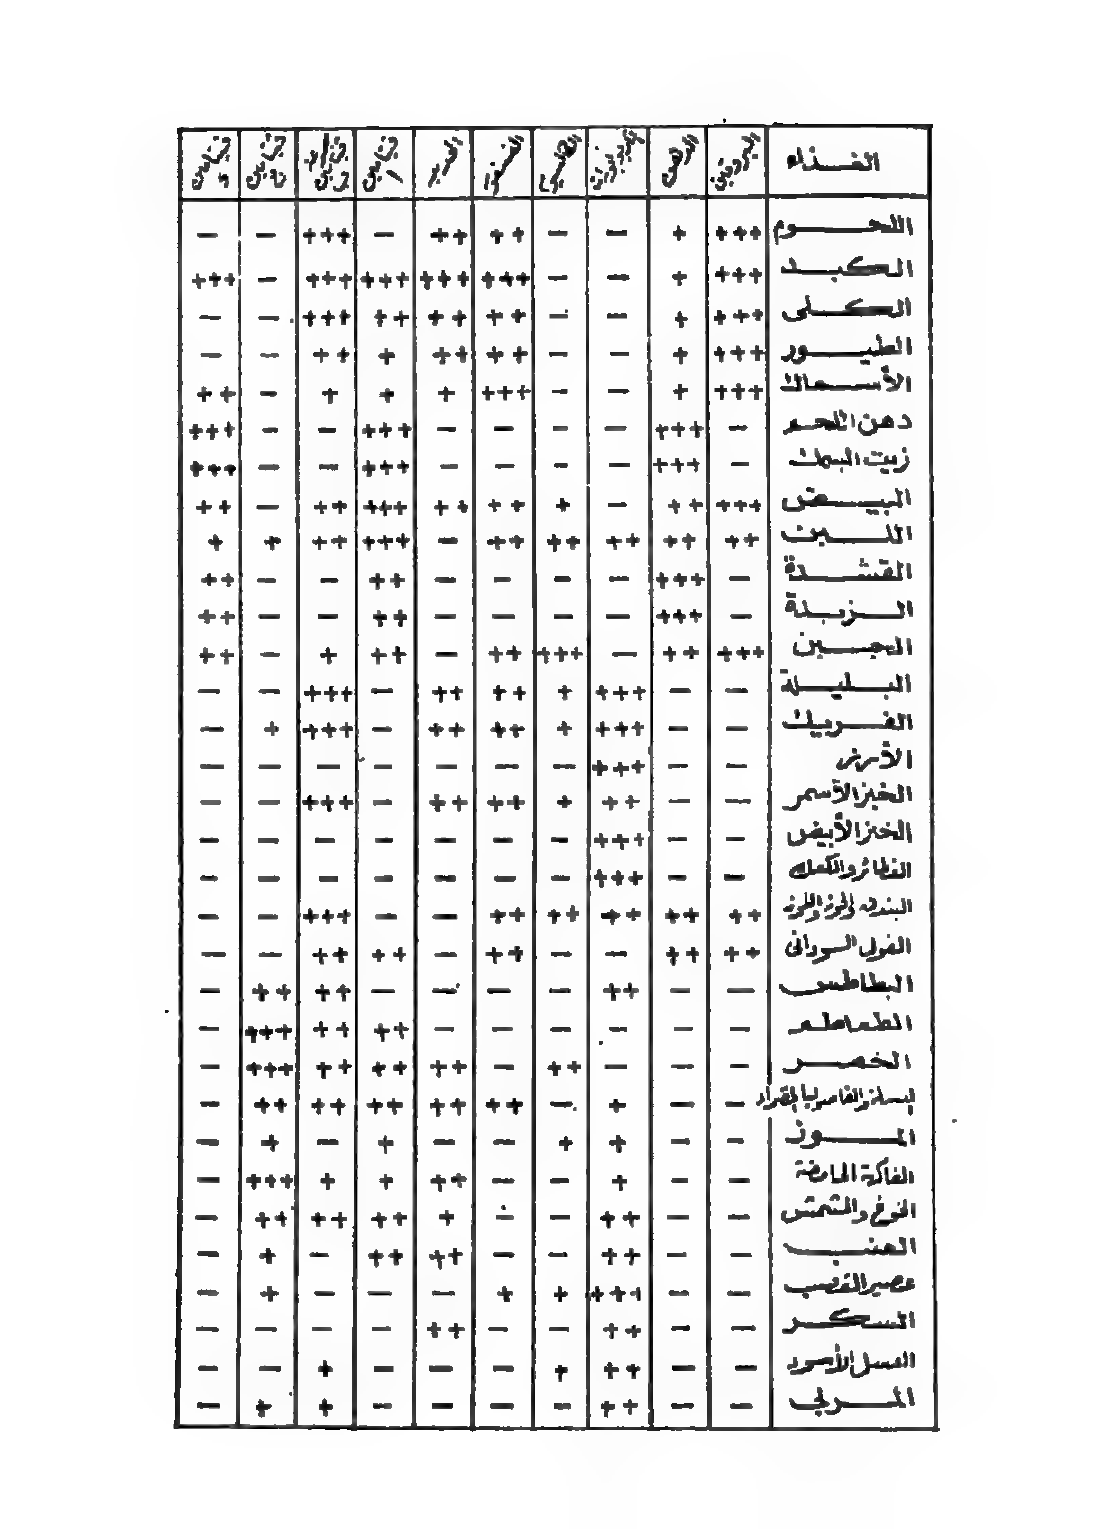 الغذاء البروتين الدهن الكربوهيدرات الكالسيوم الفسفور الحديد فيتامين أ فيتامين ب فيتامين ج فيتامين د
اللحوم +++ + — — ++ ++ — +++ — —
الكبد +++ + — — +++ +++ +++ +++ — +++
الكلى +++ + — — ++ ++ ++ +++ — —
الطيور +++ + — — ++ ++ + ++ — —
الأسماك +++ + — — +++ + + + — ++
دهن اللحم — +++ — — — — +++ — — +++
زيت السمك — +++ — — — — +++ — — +++
البيض +++ ++ — + ++ ++ +++ ++ — ++
اللبن ++ ++ ++ ++ ++ — +++ ++ + +
القشدة — +++ — — — — ++ — — ++
الزبدة — +++ — — — — ++ — — ++
الجبن +++ ++ — +++ ++ — ++ + — ++
البليلة — — +++ + ++ ++ — +++ — —
الفريك — — +++ + ++ ++ — +++ + —
الأرز — — +++ — — — — — — —
الخبز الأسمر — — ++ + ++ ++ — +++ — —
الخبز الأبيض — — +++ — — — — — — —
الفطائر والكعك — — +++ — — — — — — —
البندق والجوز واللوز ++ ++ ++ ++ ++ — — +++ — —
الفول السوداني ++ ++ — — ++ — ++ ++ — —
البطاطس — — ++ — — — — ++ ++ —
الطماطم — — — — — — ++ ++ +++ —
الخضر — — — ++ — ++ ++ ++ +++ —
البسلة والفاصوليا الخضراء — — + — ++ ++ ++ ++ ++ —
الموز — — + + — — + — + —
الفاكهة الحامضة — — + — — ++ + + +++ —
الخوخ والمشمش — — ++ — — + ++ ++ ++ —
العنب — — ++ — — ++ ++ — + —
عصير القصب — — +++ + + — — — + —
السكر — — ++ — — ++ — — — —
العسل الأسود — — ++ + — — — + — —
المربى — — ++ — — — — + + —